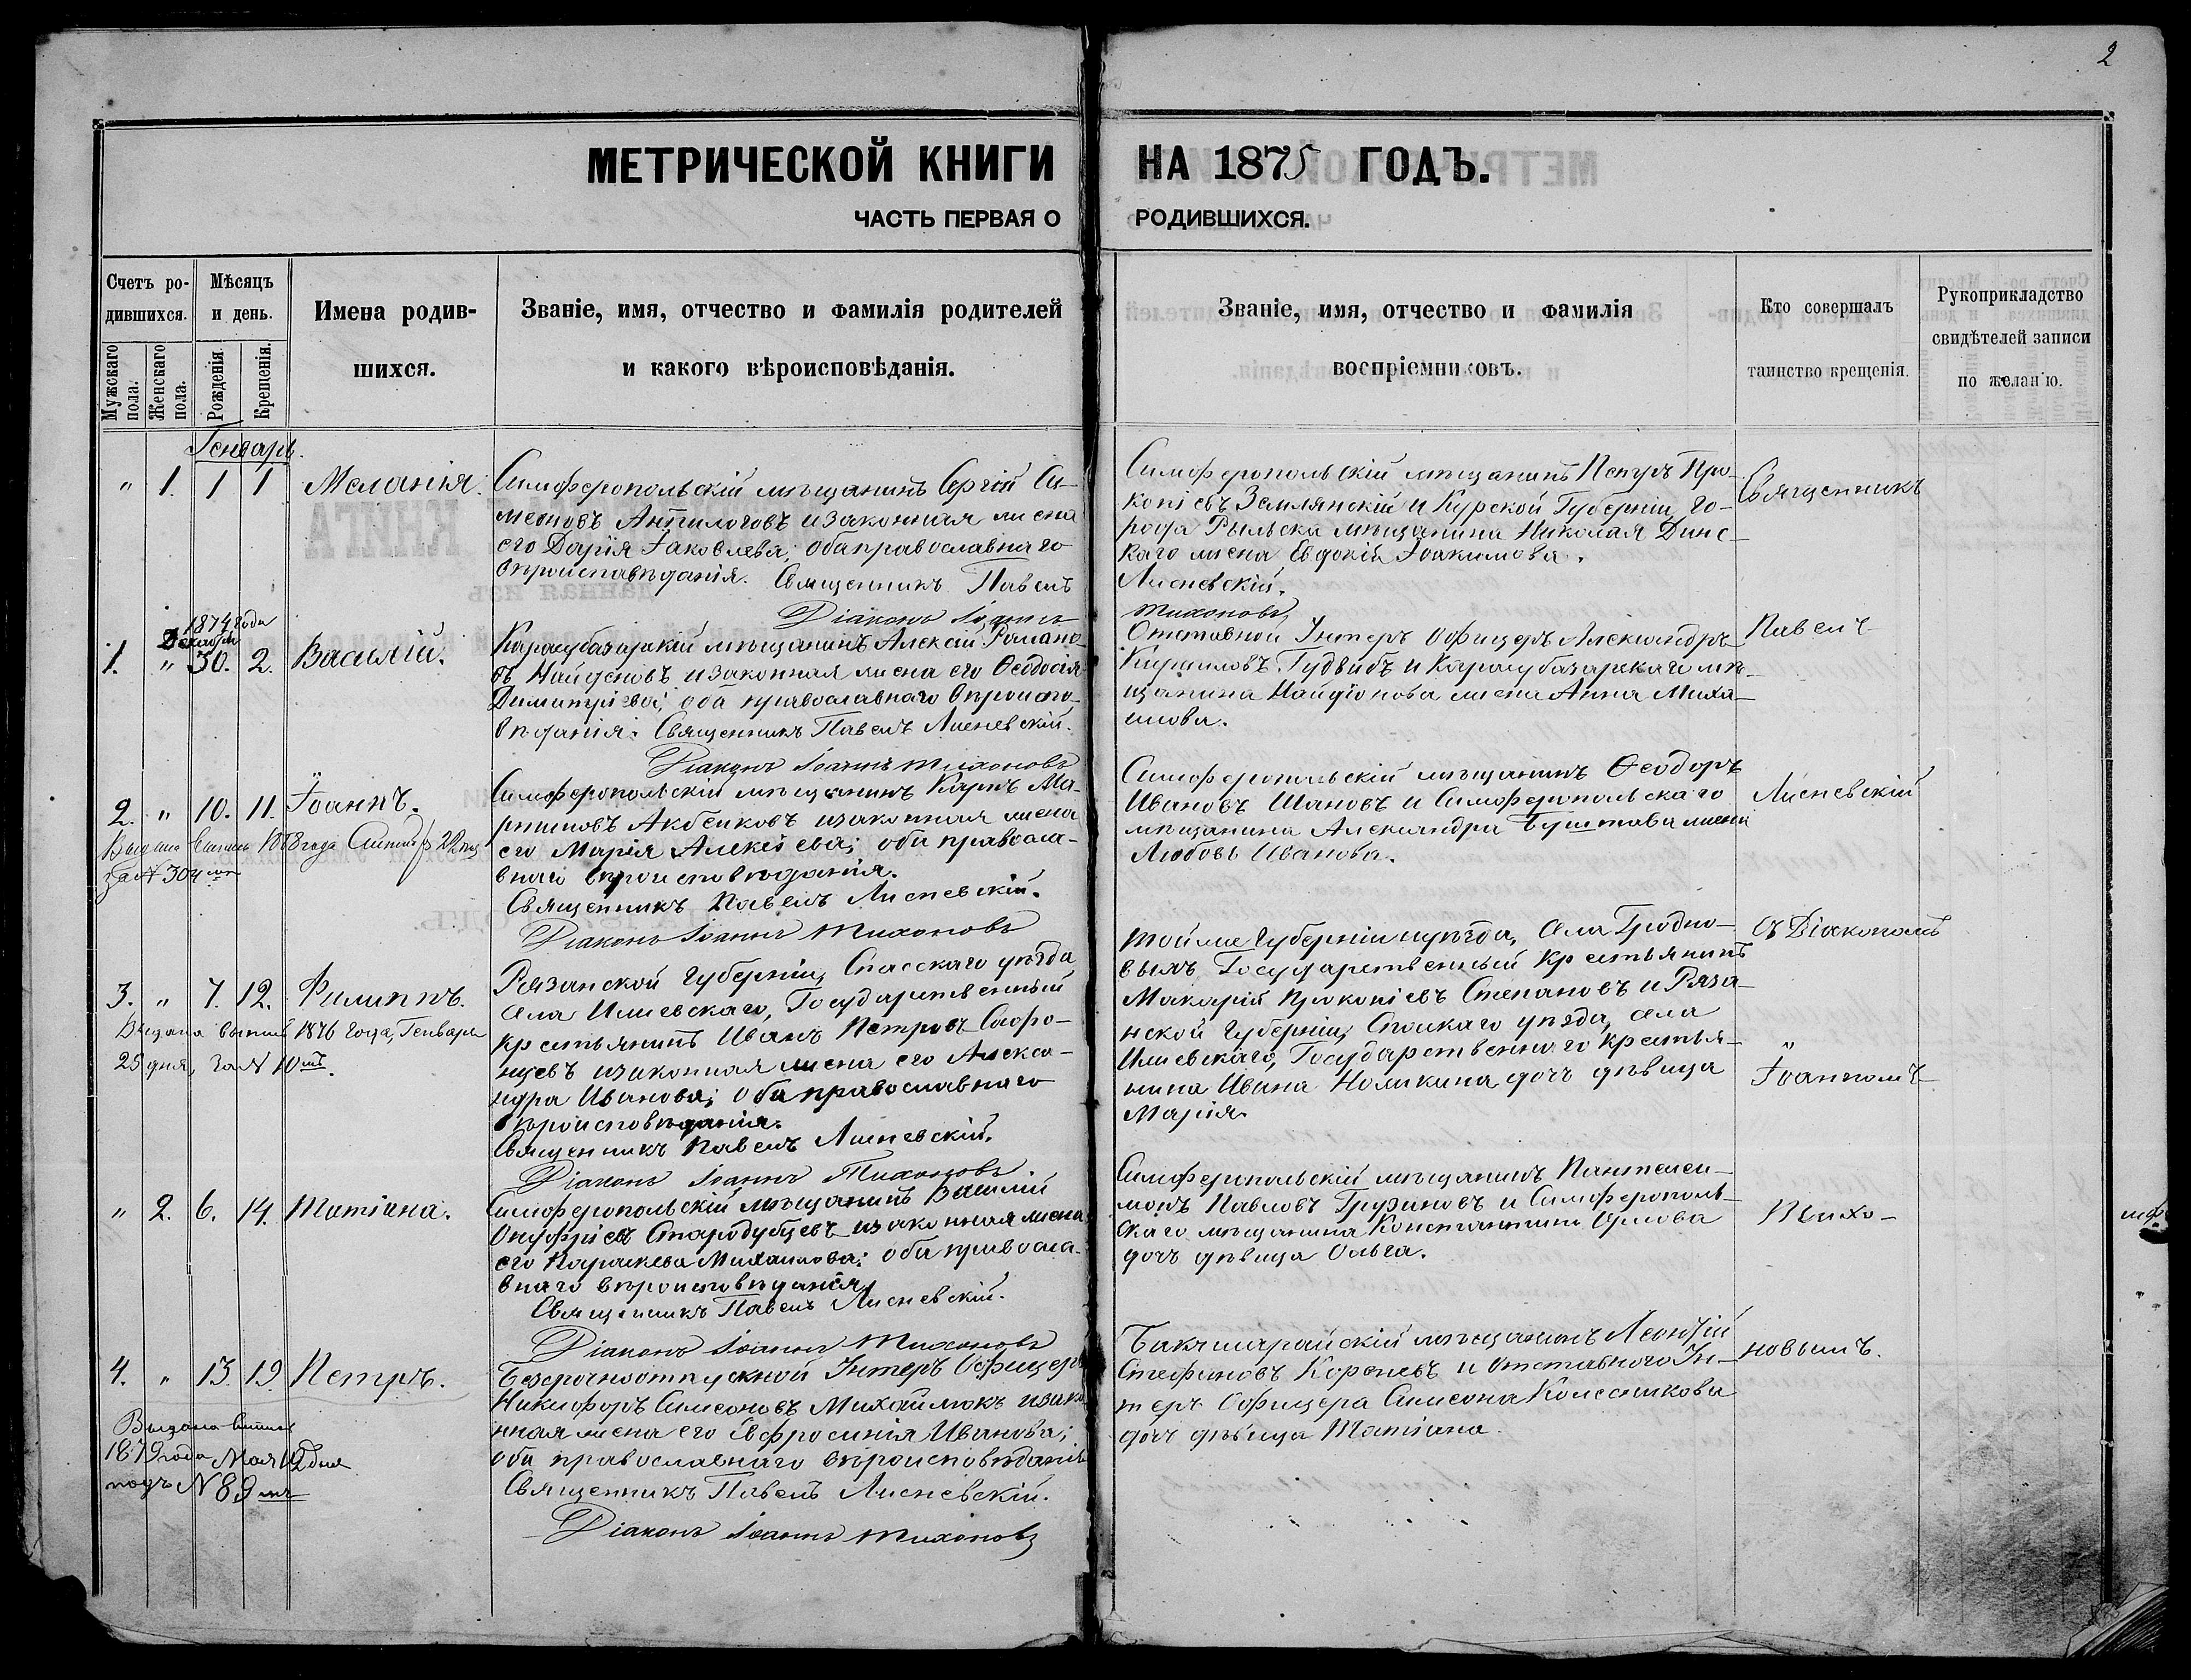 2
МЕТРИЧЕСКОЙ КНИГИ НА 1875 ГОДЪ.
ЧАСТЬ ПЕРВАЯ О РОДИВШИХСЯ.
Счетъ ро-
дившихся.
Мужскаго пола.
Женскаго пола.
Мѣсяцъ
и день.
Рожденія.
Крещенія.
Имена родив-
шихся.
Званіе, имя, отчество и фамилія родителей
и какого вѣроисповѣданія.
Званіе, имя, отчество и фамилія
воспріемниковъ.
Кто совершалъ
таинство крещенія.
Рукоприкладство
свидѣтелей записи
по желанію.
Генварь.
" 1. 1 1 Меланія.
Симферопольскій мѣщанинъ Сергій Си-
меоновъ Анпилоговъ и законная жена
его Дарія Іаковлева; оба православнаго
вѣроисповѣданія. Священникъ Павелъ
Діаконъ Іоаннъ
Симферопольскій мѣщанинъ Петръ Про-
копіевъ Землянскій и Курской Губерніи, го-
рода Рыльска мѣщанина Николая Динс-
каго жена Евдокія Іоакимова.
Лисневскій.
Тихоновъ
Священникъ
1874 года
Декабрь
1. " 30. 2. Василій.
Карасубазарскій мѣщанинъ Алексій Романо-
въ Найденовъ и законная жена его Ѳеодосія
Димитріева; оба православнаго вѣроиспо-
вѣданія. Священникъ Павелъ Лисневскій.
Діаконъ Іоаннъ Тихоновъ
Отставной Унтеръ Офицеръ Александръ
Кириловъ Гудвибъ и Карасубазарскаго мѣ-
щанина Найдіонова жена Анна Миха-
илова.
Павелъ
2. " 10. 11. Іоаннъ.
Выдана выпись 1888 года Сентяб 22 дня
за № 304мъ
Симферопольскій мѣщанинъ Карпъ Ма-
ртиновъ Акбенковъ и законная жена
его Марія Алексіева; оба правосла-
внаго вѣроисповѣданія.
Священникъ Павелъ Лисневскій.
Діаконъ Іоаннъ Тихоновъ
Симферопольскій мѣщанинъ Ѳеодоръ
Ивановъ Шановъ и Симферопольскаго
мѣщанина Александра Буштаба жена
Любовь Иванова.
Лисневскій
3. " 7. 12. Филиппъ.
Выдана выпись 1876 года, Генваря
25 дня, за № 10мъ.
Рязанской Губерніи, Спасскаго уѣзда
села Ижевскаго, Государственный
крестьянинъ Иванъ Петровъ Сафо-
нцевъ и законная жена его Алекса-
ндра Иванова; оба православнаго
вѣроисповѣданія.
Священникъ Павелъ Лисневскій.
Діаконъ Іоаннъ Тихоновъ.
той же Губерніи и уѣзда, села
Государственный крестьянинъ
Макарій Прокопіевъ Степановъ и Ряза-
нской Губерніи, Спаскаго уѣзда, села
Ижевскаго, Государственнаго крестья-
нина Ивана Номикина дочь дѣвица
Марія.
съ Діакономъ
"
Іоанномъ
" 2. 6. 14. Татіана.
Симферопольскій мѣщанинъ Василій
Онуфріевъ Стародубцевъ и законная жена
его Параскева Михаилова; оба правосла-
внаго вѣроисповѣданія.
Священникъ Павелъ Лисневскій.
Діаконъ Іоаннъ Тихоновъ
Симферопольскій мѣщанинъ Пантелеи-
монъ Павловъ Грузиновъ и Симферополь-
скаго мѣщанина Константина Орлова
дочь дѣвица Ольга.
Тихо-
4. " 13. 19. Петръ.
Выдана выпись
1879 года Мая 12 дня
подъ № 89мъ
Безсрочноотпускной Унтеръ Офицеръ
Никифоръ Симеоновъ Михайлюкъ и зако
нная жена его Евфросинія Иванова;
оба православнаго вѣроисповѣданія
Священникъ Павелъ Лисневскій.
Діаконъ Іоаннъ Тихоновъ
Бакчисарайскій мѣщанинъ Леонтій
Стефановъ Королевъ и отставного Ун-
теръ Офицера Симеона Колесникова
дочь дѣвица Татіана.
новымъ.